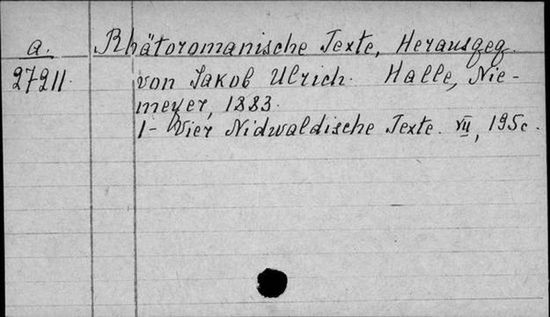 a. Rhätoromanische Texte, Herausgeg.
27211 von Jakob Ulrich. Halle, Nie-
meyer, 1883.
1- Vier Nidwaldische Texte. VII, 195c.